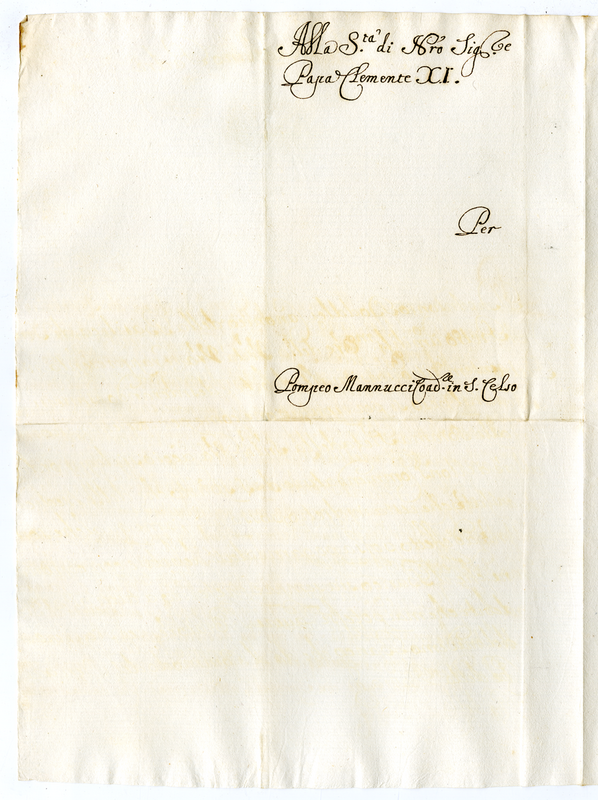 Alla S.ta di Nro Sig.re
Papa Clemente XI.
Per
Pompeo Mannucci Coad.re in S. Celso